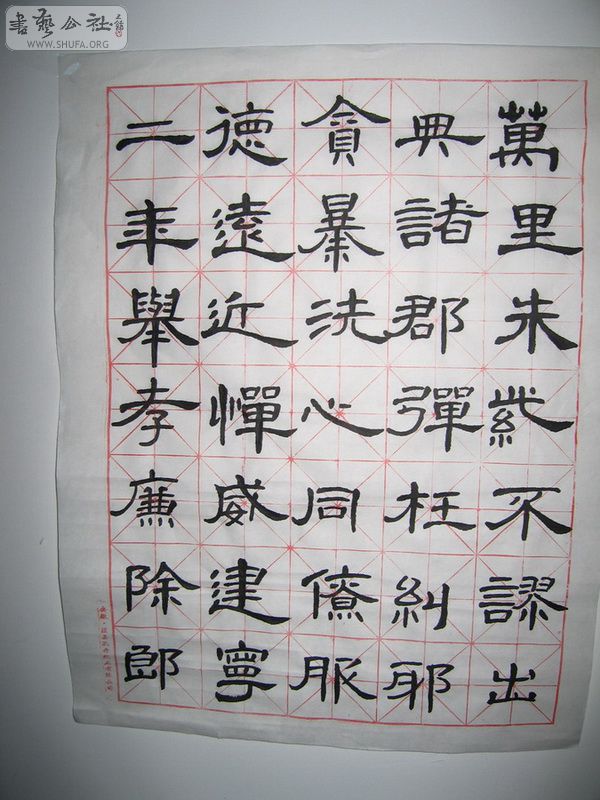 書藝公社
WWW.SHUFA.ORG
萬里朱紫不謬出
典諸郡彈枉糾邪
貪暴洗心同僚服
德遠近憚威建寧
二年舉孝廉除郎